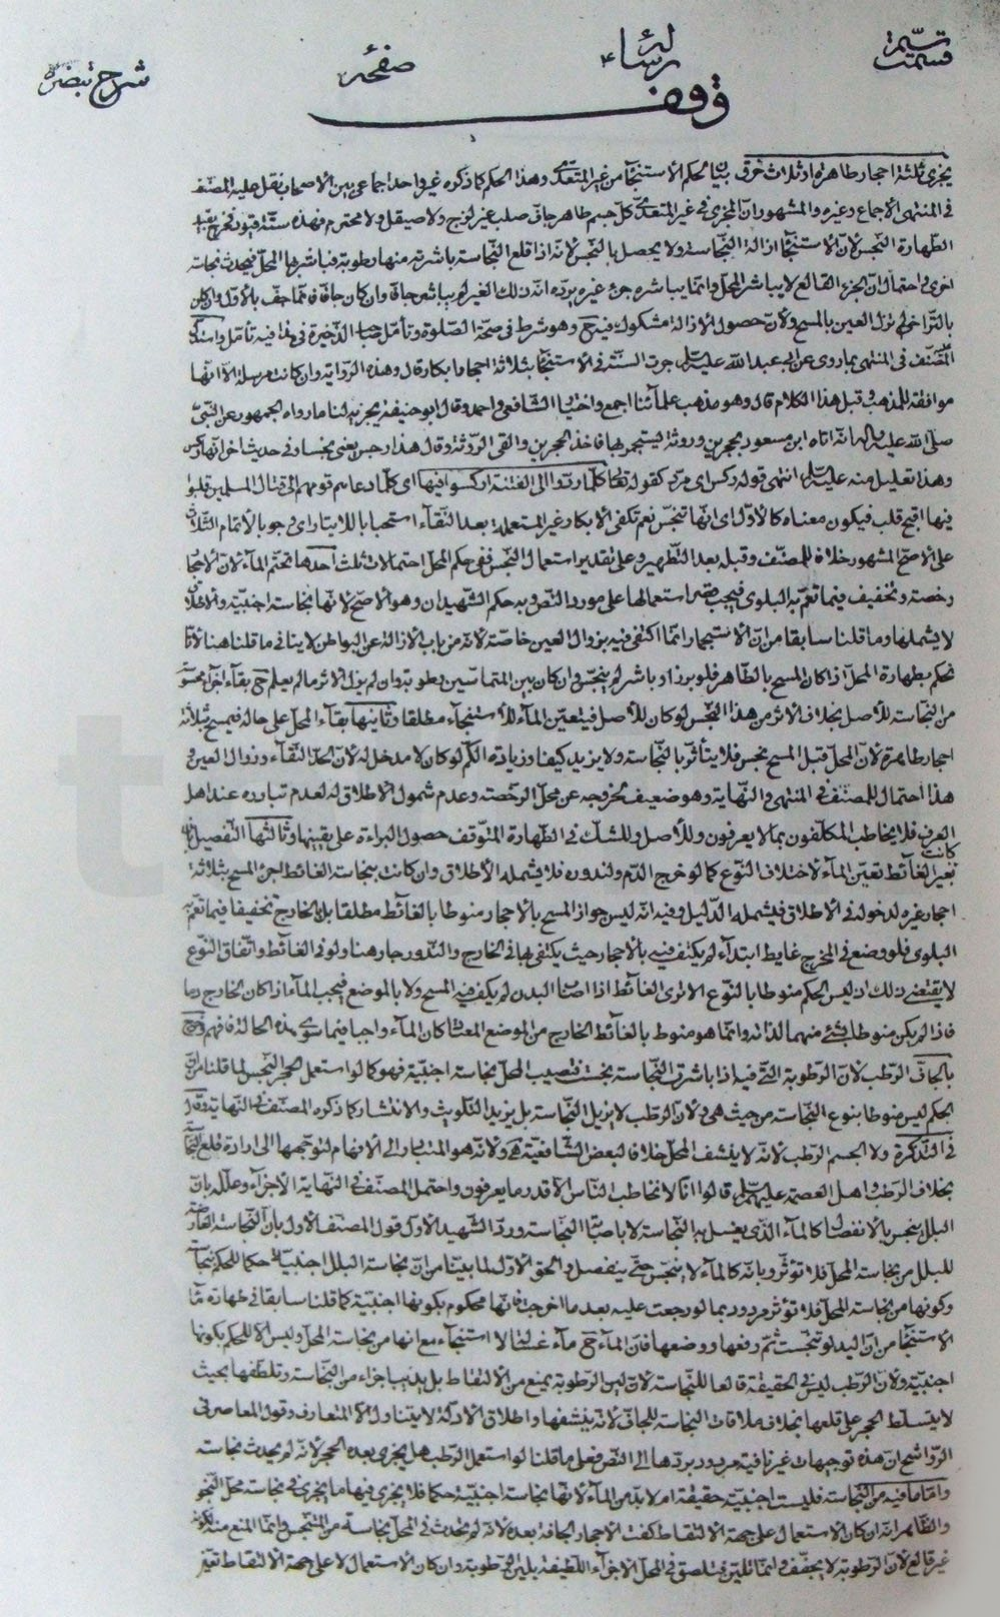 رسالة
صفحه
شرح تبصرة
وقف
يجزى ثلثة احجار طاهرة او ثلاث خرق بيان لحكم الاستنجآء من غير المتعدّى وهذا الحكم كما ذكره غير واحد اجماعى بين الاصحاب نقل عليه المصنف
فى المنتهى الاجماع وغيره والمشهور انّ المجزى فى غير المتعدّى كلّ جسم طاهر جافّ صلب غير لزج ولا صيقل ولا محترم فهذه ستّة قيود
الطّهارة النّجس لانّ الاستنجآء ازالة النّجاسة ولا يحصل بالنّجس لانّه اذا قلع النّجاسة باشرته منها رطوبة فباشر بها المحلّ فيحدث نجاسة
اخرى واحتمال انّ الجزء القالع لا يباشر المحلّ وانّما يباشره جزء غيره يردّه انّ ذلك الغير لم يباشر جافّا وان كان جافّا فانّما جفّ بالاوّل وان كان
بالتّراخى لم تزل العين بالمسح ولانّ حصول الازالة مشكوك فيه ح وهو شرط فى صحّة الصّلوة وتأمّل صاحب الذّخيرة فى هذا فيه تأمّل واستدلّ
المصّنّف فى المنتهى بما روى عن ابى عبد الله عليه السلم جرت السنّة فى الاستنجآء بثلاثة احجار ابكار قال وهذه الرّواية وان كانت مرسلة الّا انّها
موافقة للمذهب وقبل هذا الكلام قال وهو مذهب علمآئنا اجمع واختيار الشّافعى واحمد وقال ابو حنيفة يجزيه لنا ما رواه الجمهور عن النّبىّ
صلّى الله عليه واله انّه اتاه ابن مسعود بحجرين وروثة ليستجمر بها فاخذ الحجرين والقى الرّوثة وقال هذا رجس يعنى نجسا وفى حديث اخر انّها ركس
وهذا تعليل منه عليه السلم انتهى قوله ركس اى مرتدّ كقوله تعالى كلّما ردّوا الى الفتنة اركسوا فيها اى كلّما دعاهم قومهم الى قتال المسلمين قلبوا
فيها اقبح قلب فيكون معناه كالاوّل اى انّها تنجّس نعم تكفى الابكار وغير المستعملة بعد النّقآء استحبابا للايتار او فى وجوب الاتمام الثّلاث
على الاصحّ المشهور خلافا للمصنّف وقبله بعد التّطهير وعلى تقدير استعمال النّجس ففى حكم المحلّ احتمالات ثلث احدها تحتّم المآء لانّ الاحجار
رخصة وتخفيف فيما تعمّ به البلوى فيجب قصر استعمالها على مورد النّص وبه حكم الشّهيدان وهو الاصحّ لانّها نجاسة اجنبيّة والاطلاق
لا يشملها وما قلنا سابقا من انّ الاستجمار انّما اكتفى فيه بزوال العين خاصّة لانّه من باب الازالة عن البواطن لا ينافى ما قلنا هنا لانّا
نحكم بطهارة المحلّ اذا كان المسح بالطّاهر فلو برز او باشر لم ينجّس وان كان بين المتماسّين رطوبة وان لم يزل الاثر ما لم يعلم ح بقآء اجزآء محسوسة
من النّجاسة للاصل بخلاف الاثر من هذا النّجس لو كان للاصل فيتعيّن المآء للاستنجآء مطلقا وثانيها بقآء المحلّ على حاله فيمسح بثلاثة
احجار طاهرة لانّ المحلّ قبل المسح نجس فلا يتأثّر بالنّجاسة ولا يزيد كيفا وزيادة الكمّ لو كان لا مدخل له لانّ الحدّ النّقآء وزوال العين
هذا احتمال للمصنّف فى المنتهى والنّهاية وهو ضعيف لخروجه عن محلّ الرّخصة وعدم شمول الاطلاق له لعدم تبادره عند اهل
العرف فلا يخاطب المكلّفون بما لا يعرفون وللاصل وللشّك فى الطّهارة المتوقّف حصول البراءة على يقينها وثالثها التّفصيل فان كانت
بغير الغآئط تعيّن المآء لاختلاف النّوع كما لو خرج الدّم ولندوره فلا يشمله الاطلاق وان كانت بنجاسة الغآئط اجزء المسح بثلاثة
احجار غيره لدخوله فى الاطلاق فيشمله الدّليل وفيه انّه ليس جواز المسح بالاحجار منوطا بالغآئط مطلقا بل بالخارج تخفيفا فيما تعمّ به
البلوى فلو وضع فى المخرج غايط ابتدآء لم يكتف فيه بالاحجار حيث يكتفى بها فى الخارج والنّدور جار هنا ولو فى الغآئط واتّفاق النّوع
لا يقتضى ذلك اذ ليس الحكم منوطا بالنّوع الا ترى الغآئط اذا اصاب البدن لم يكف فيه المسح ولا بالموضع فيجب المآء اذا كان الخارج دما
فاذا لم يكن منوطا بشىء منهما لذاته وانّما هو منوط بالغآئط الخارج من الموضع المعتاد كان المآء واجبا فيما سوى هذه الحالة فافهم وخرج
بالجافّ الرّطب لانّ الرّطوبة الّتى فيه اذا باشرت النّجاسة نجست فتصيب المحلّ نجاسة اجنبيّة فهو كما لو استعمل الحجر النّجس لما قلنا من انّ
الحكم ليس منوطا بنوع النّجاسة من حيث هى ولانّ الرّطب لا يزيل النّجاسة بل يزيد التّلويث والانتشار كما ذكره المصنّف فى النّهاية وقال
فى التّذكرة ولا الجسم الرّطب لانّه لا ينشف المحلّ خلافا لبعض الشّافعيّة ولانّه هو المتبادر الى الافهام لتوجّهها الى ارادة قلع النّجاسة
بخلاف الرّطب واهل العصمة عليهم السلم قالوا انّا لا نخاطب النّاس الّا قدر ما يعرفون واحتمل المصنّف فى النّهاية الاجزآء وعلّله بانّ
البلل ينجس بالانفصال كالمآء الّذى يغسل به النّجاسة لا باصابة النّجاسة وردّ الشّهيد الاوّل قول المصنّف الاوّل بانّ النّجاسة العارضة
للبلل من نجاسة المحلّ فلا تؤثّر وبانّه كالمآء لا ينجّس حتّى ينفصل والحقّ الاوّل لما بيّنّا من انّ نجاسة البلل اجنبيّة حكما للحكم بنجاستها
وكونها من نجاسة المحلّ فلا تؤثّر مردود بما لو رجعت عليه بعد ما اخرجت فانّها محكوم بكونها اجنبيّة كما قلنا سابقا فى طهارة مآء
الاستنجآء من انّ اليد لو تنجّست ثمّ رفعها ووضعها فانّ المآء ح مآء غسالة لا استنجآء مع انها من نجاسة المحلّ وليس الّا للحكم بكونها
اجنبيّة ولانّ الرّطب ليس فى الحقيقة قالعا للنّجاسة لانّ ليس الرّطوبة يمنع من الالتقاط بل يذيب اجزاء من النّجاسة وتلطّفها بحيث
لا يتسلّط الحجر على قلعها بخلاف ملاقات النّجاسة للجافّ لانّه ينشفها واطلاق الادلّة لا يتناول الّا المتعارف وقول المعاصر فى
الرّواشح انّ هذه توجيهات غير نافية مردود بردّها الى النّصّ فعلى ما قلنا لو استعمل الرّطب هل يجزى بعده الحجر لانّه لم يحدث نجاسة
وامّا ما فيه من النّجاسة فليست اجنبيّة حقيقة ام لا بدّ من المآء لانّها نجاسة اجنبيّة حكما فلا يجزى فيها ما يجزى فى نجاسة محلّ النّجو
والظّاهر انّه ان كان الاستعمال على جهة الالتقاط كفت الاحجار الجافّة بعده لانّه لم يحدث فى المحلّ نجاسة من المتنجّس وانّما المنع منه لكونه
غير قالع لانّ الرّطوبة لا يجفّف وانّما تليّن فتلصق فى المحلّ الاجزآء اللّطيفة بلين الرّطوبة وان كان الاستعمال لا على جهة الالتقاط تعيّن